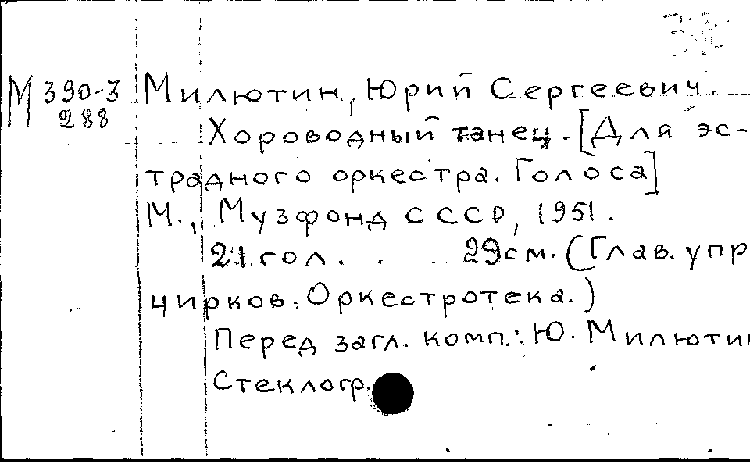 М 390-3 Милютин, Юрий Сергеевич.
288
Хороводный танец. [Для эс-
традного оркестра. Голоса]
М., Музфонд СССР, 1951.
21 гол. 29см. (Глав. упр
цирков. Оркестротека.)
Перед загл. комп.: Ю. Милютин
Стеклогр.